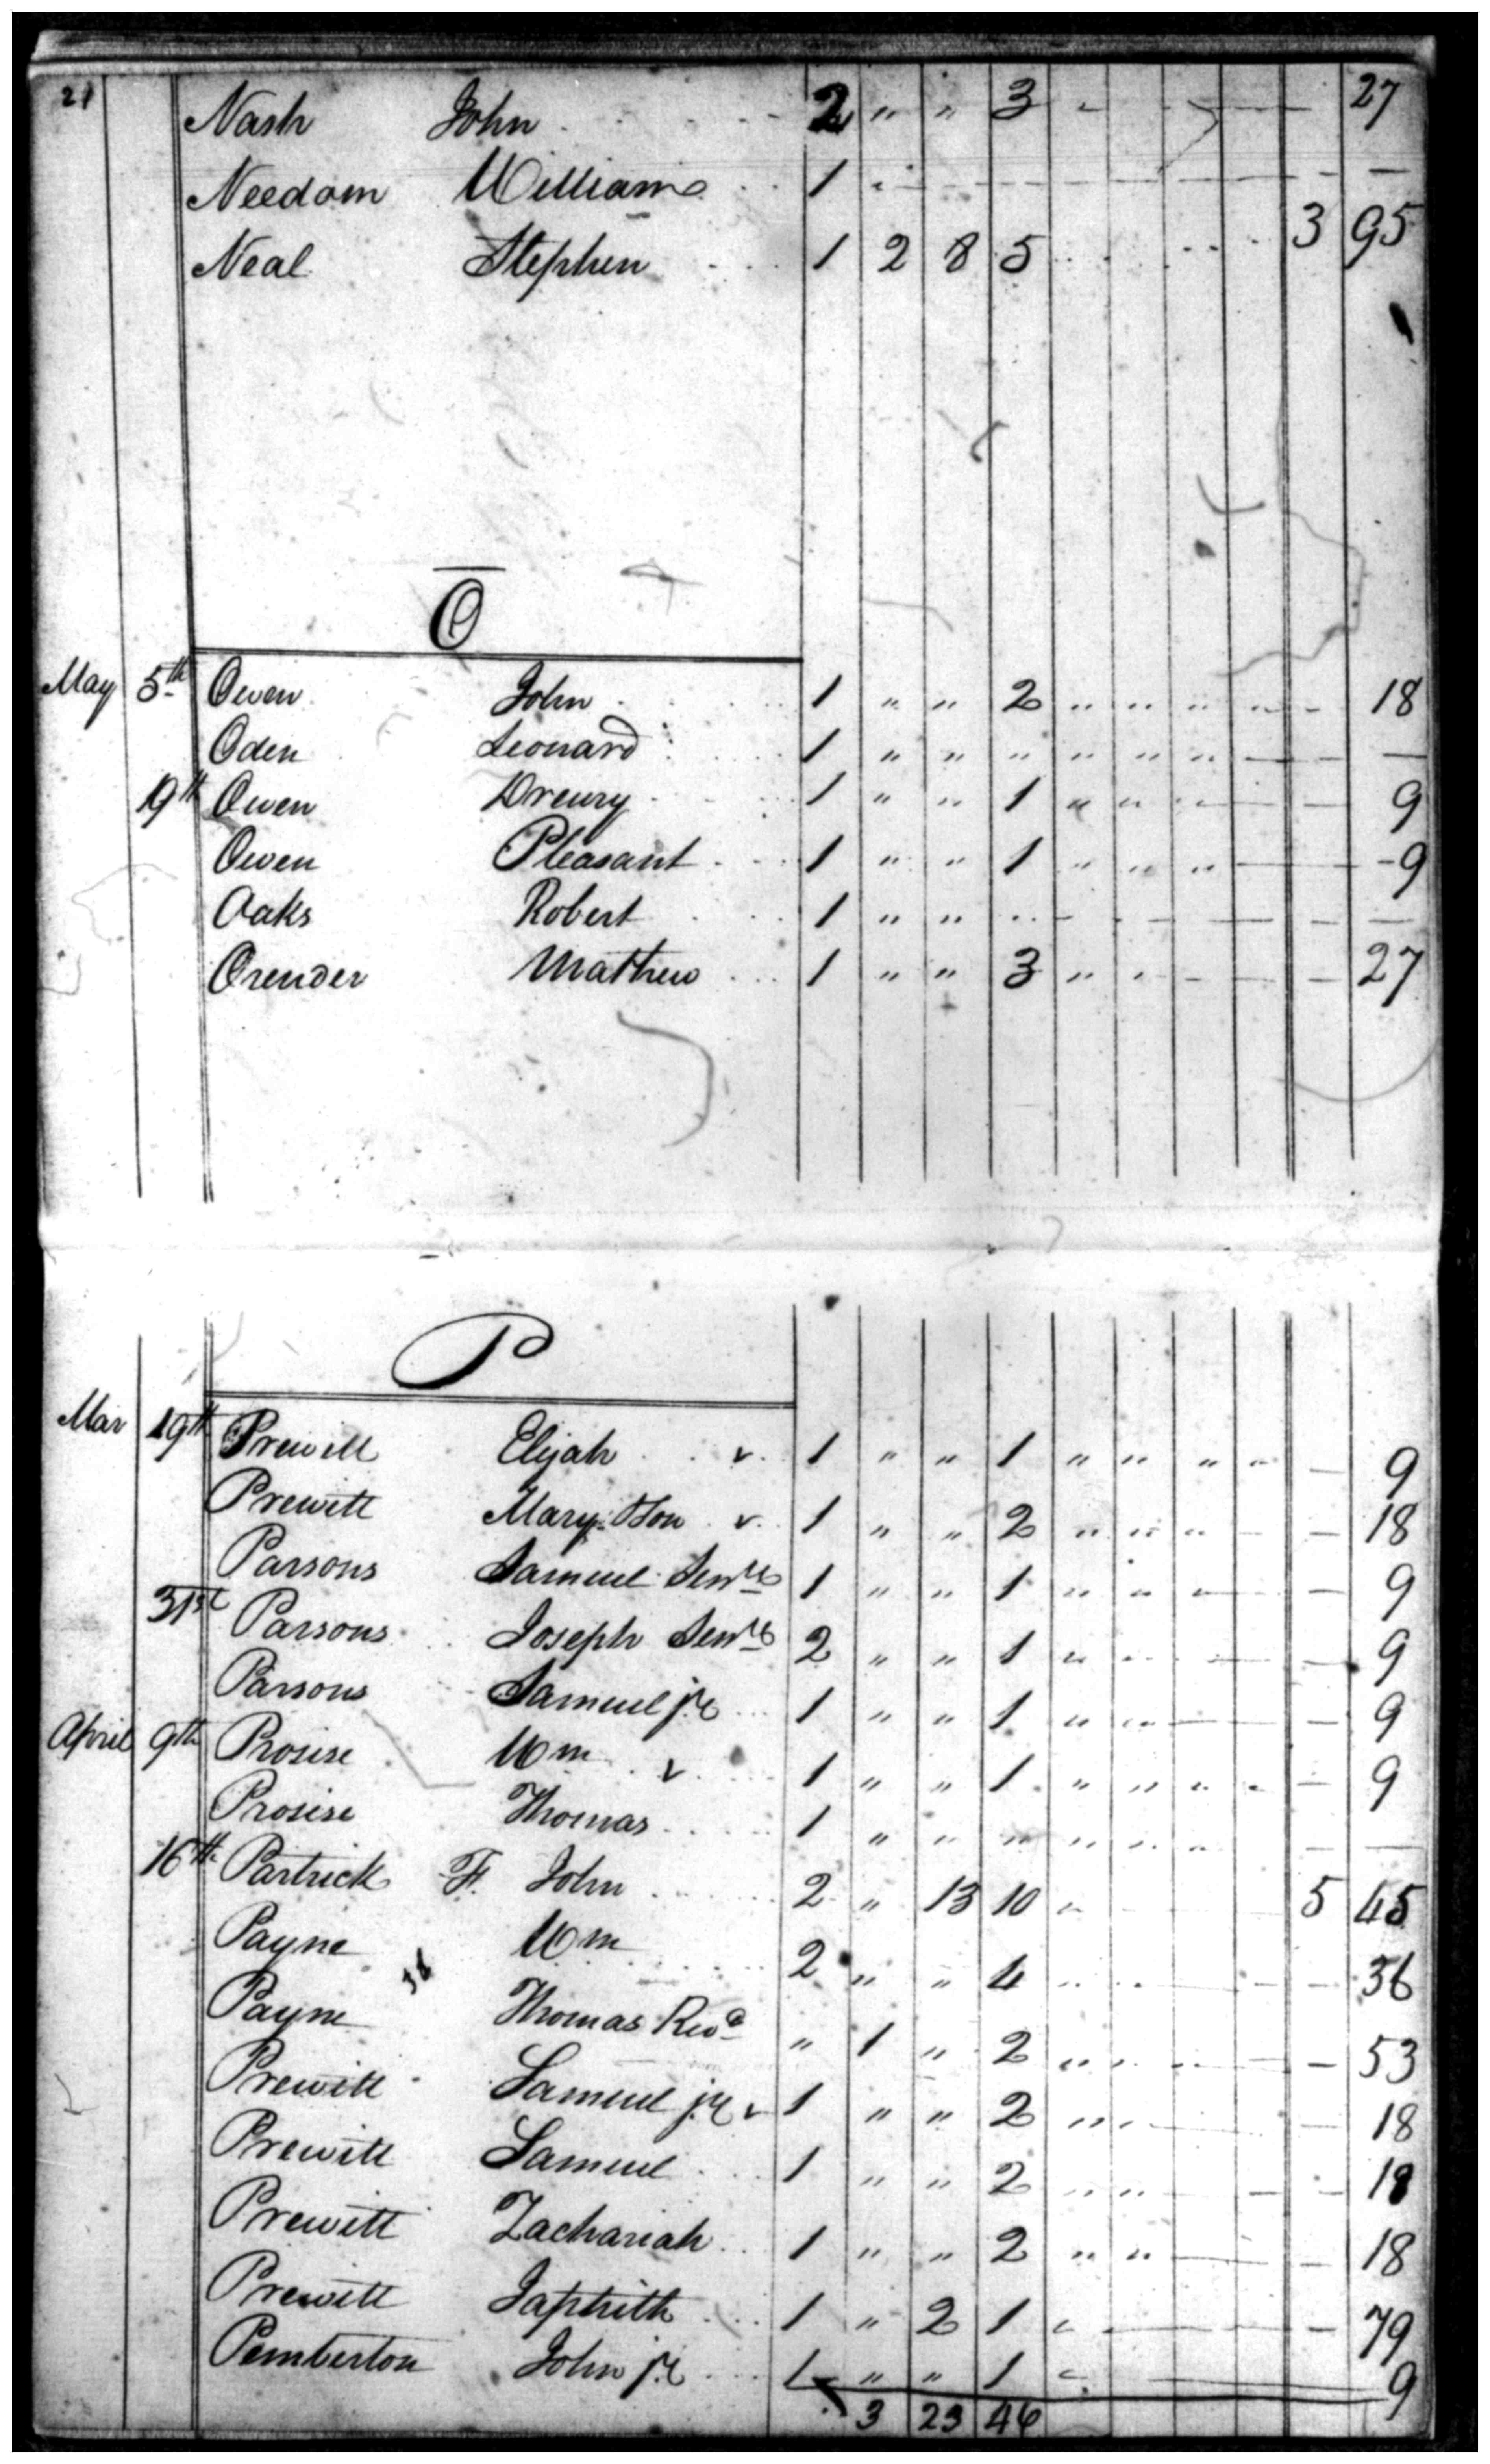 21 Nash John 2 " " 3 27
Needom William 1
Neal Stephen 1 2 8 5 3 95
O
May 5th Owen John 1 " " 2 " " " " 18
Oden Leonard 1 " " " " " "
19th Owen Drewry 1 " " 1 " " " 9
Owen Pleasant 1 " " 1 " " " 9
Oaks Robert 1 " "
Orender Mathew 1 " " 3 " " 27
P
Mar 19th Prewitt Elijah v 1 " " 1 " " " " 9
Prewitt Mary Son v 1 " " 2 " " " 18
Parsons Samuel Senr 1 " " 1 " " " 9
31st Parsons Joseph Senr 2 " " 1 " " 9
Parsons Samuel jr 1 " " 1 " " 9
April 9th Prosise Wm v 1 " " 1 " " " " 9
Prosise Thomas 1 " " " " " "
16th Partrick F. John 2 " 13 10 " 5 45
Payne Wm 2 " " 4 " 36
Payne Thomas Revd " 1 " 2 " " 53
Prewitt Samuel jr v 1 " " 2 " " 18
Prewitt Samuel 1 " " 2 " " 18
Prewitt Zachariah 1 " " 2 " " 18
Prewitt Japhith 1 " 2 1 " 79
Pemberton John jr 1 " " 1 " 9
3 23 46